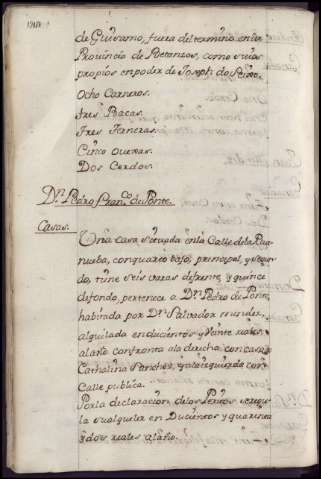 de Guisamo, fuera del termino en la
Provincia de Betanzos, como suios
propios en poder de Joseph do Peino.
Ocho Carneros.
tres Bacas.
Tres Terneras.
Cinco ouexas.
Dos Cerdos.
Dn. Pedro Franco. de Ponte.
Casas.
Una casa situada en la Calle de la Rua
nueba, con quarto bajo, principal, y segun
do, tiene seis varas de frente, y quince
de fondo, pertenece a Dn. Pedro de Ponte,
habitada por Dn. Salvador
alquilada en ducientos y veinte reales
al año confronta ala derecha con casa
Cathalina Sanchez, y ala izquierda con
Calle publica.
Por la declaracion de los Peritos se regu
la su alquiler en Ducientos y quarenta
y dos, reales al año.